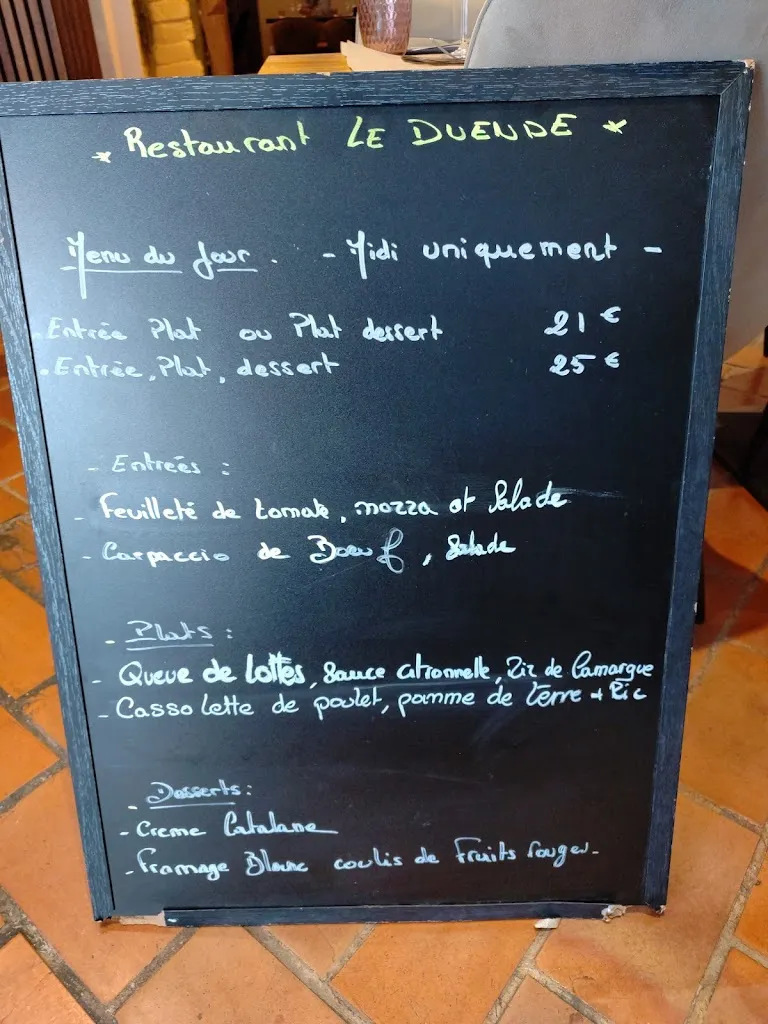 * Restaurant LE DUENDE *
Menu du Jour. - Midi uniquement -
. Entrée Plat ou Plat dessert 21 €
. Entrée, Plat, dessert 25 €
- Entrées :
- Feuilleté de tomate, mozza et Salade
- Carpaccio de Boeuf, Salade
- Plats :
- Queue de lottes, Sauce citronnelle, Riz de Camargue
- Cassolette de poulet, pomme de terre + Riz
- Desserts :
- Creme Catalane
- Fromage Blanc coulis de Fruits rouges.